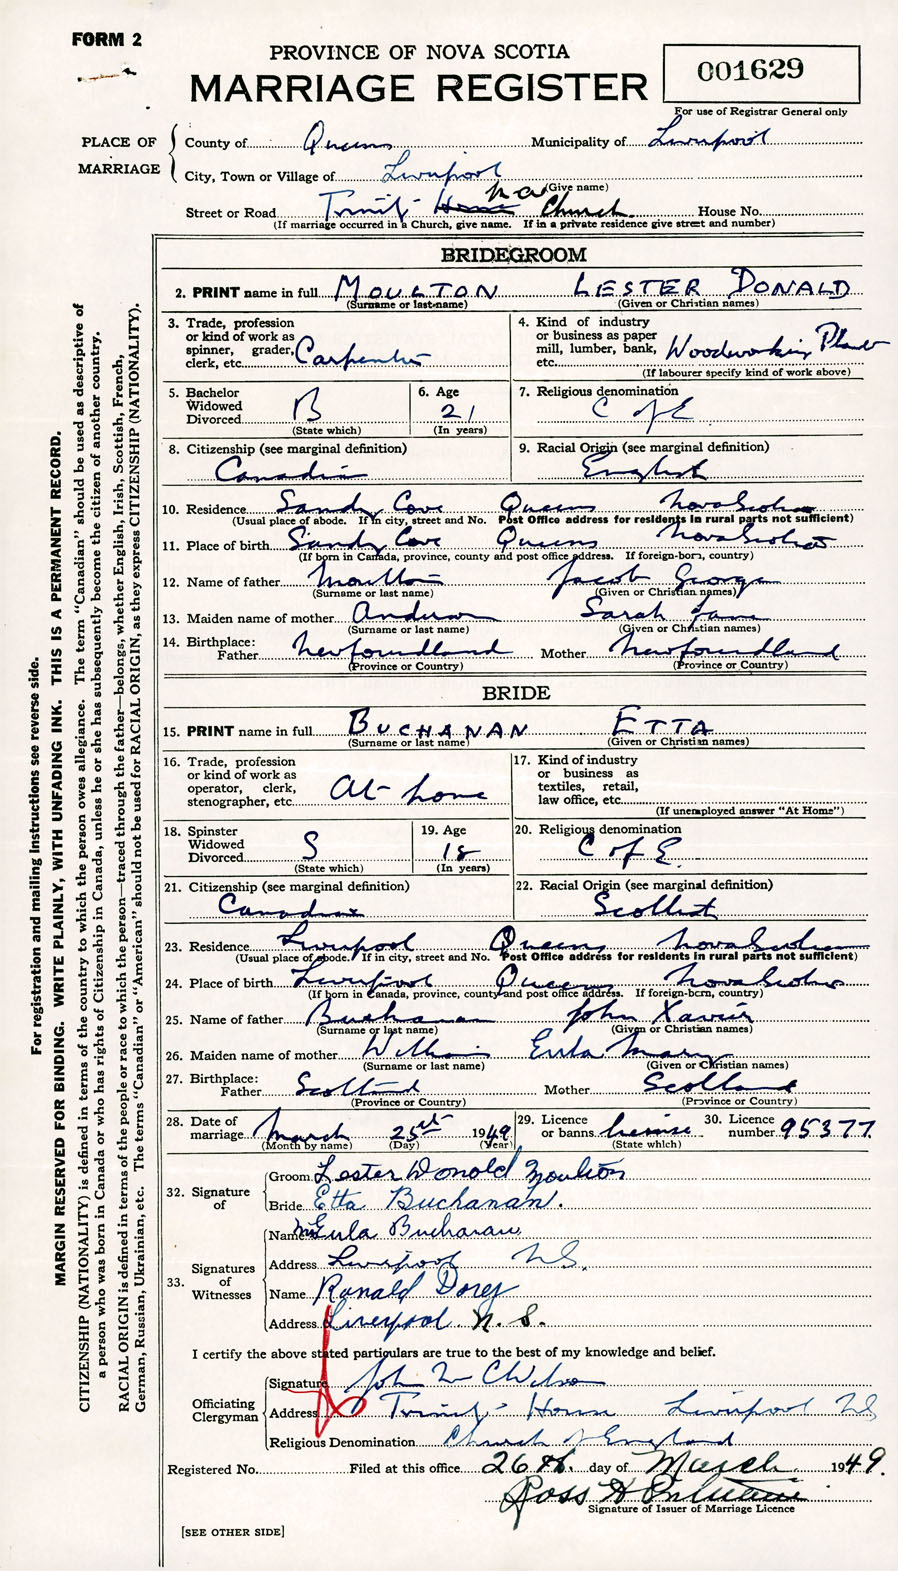 FORM 2
PROVINCE OF NOVA SCOTIA
MARRIAGE REGISTER
001629
For use of Registrar General only
PLACE OF MARRIAGE
County of Queens Municipality of Liverpool
City, Town or Village of Liverpool
(Give name)
Street or Road Trinity House Church House No.
(If marriage occurred in a Church, give name. If in a private residence give street and number)
BRIDEGROOM
2. PRINT name in full MOULTON LESTER DONALD
(Surname or last name) (Given or Christian names)
3. Trade, profession or kind of work as spinner, grader, clerk, etc. Carpenter
4. Kind of industry or business as paper mill, lumber, bank, etc. Woodworking Plant
(If labourer specify kind of work above)
5. Bachelor Widowed Divorced B
(State which)
6. Age 21
(In years)
7. Religious denomination C of E
8. Citizenship (see marginal definition) Canadian
9. Racial Origin (see marginal definition) English
10. Residence Sandy Cove Queens Nova Scotia
(Usual place of abode. If in city, street and No. Post Office address for residents in rural parts not sufficient)
11. Place of birth Sandy Cove Queens Nova Scotia
(If born in Canada, province, county and post office address. If foreign-born, country)
12. Name of father Moulton Jacob George
(Surname or last name) (Given or Christian names)
13. Maiden name of mother Anderson Sarah Jane
(Surname or last name) (Given or Christian names)
14. Birthplace: Father Newfoundland Mother Newfoundland
(Province or Country) (Province or Country)
BRIDE
15. PRINT name in full BUCHANAN ETTA
(Surname or last name) (Given or Christian names)
16. Trade, profession or kind of work as operator, clerk, stenographer, etc. At home
17. Kind of industry or business as textiles, retail, law office, etc.
(If unemployed answer "At Home")
18. Spinster Widowed Divorced S
(State which)
19. Age 18
(In years)
20. Religious denomination C of E.
21. Citizenship (see marginal definition) Canadian
22. Racial Origin (see marginal definition) Scottish
23. Residence Liverpool Queens Nova Scotia
(Usual place of abode. If in city, street and No. Post Office address for residents in rural parts not sufficient)
24. Place of birth Liverpool Queens Nova Scotia
(If born in Canada, province, county and post office address. If foreign-born, country)
25. Name of father Buchanan John Xavier
(Surname or last name) (Given or Christian names)
26. Maiden name of mother Eula Mary
(Surname or last name) (Given or Christian names)
27. Birthplace: Father Scotland Mother Scotland
(Province or Country) (Province or Country)
28. Date of marriage March 25th 1949
(Month by name) (Day) (Year)
29. Licence or banns license
(State which)
30. Licence number 95377
32. Signature of
Groom Lester Donald Moulton
Bride Etta Buchanan.
33. Signatures of Witnesses
Name Mrs Eula Buchanan
Address Liverpool NS.
Name Ronald Dorey
Address Liverpool N. S.
I certify the above stated particulars are true to the best of my knowledge and belief.
Officiating Clergyman
Signature John
Address Trinity House Liverpool NS
Religious Denomination Church of England
Registered No. Filed at this office 26th. day of March 1949.
Ross H
Signature of Issuer of Marriage Licence
[SEE OTHER SIDE]
For registration and mailing instructions see reverse side.
MARGIN RESERVED FOR BINDING. WRITE PLAINLY, WITH UNFADING INK. THIS IS A PERMANENT RECORD.
CITIZENSHIP (NATIONALITY) is defined in terms of the country to which the person owes allegiance. The term "Canadian" should be used as descriptive of
a person who was born in Canada or who has rights of Citizenship in Canada, unless he or she has subsequently become the citizen of another country.
RACIAL ORIGIN is defined in terms of the people or race to which the person—traced through the father—belongs, whether English, Irish, Scottish, French,
German, Russian, Ukrainian, etc. The terms "Canadian" or "American" should not be used for RACIAL ORIGIN, as they express CITIZENSHIP (NATIONALITY).